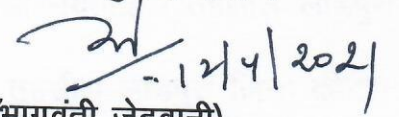 12/4/2021
(भागवंती जेठवानी)